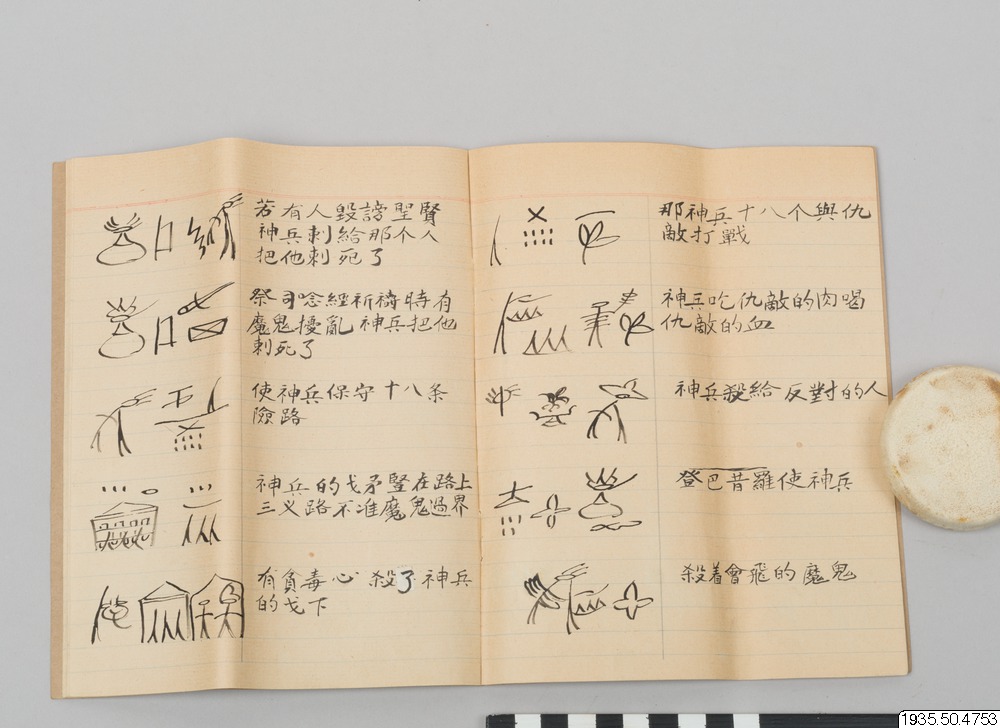 若有人毀謗聖賢
神兵刺給那个人
把他刺死了
祭司唸經祈禱時有
魔鬼擾亂神兵把他
刺死了
使神兵保守十八条
險路
神兵的戈矛竪在路上
三义路不准魔鬼過界
有貪毒心殺了神兵
的戈下
那神兵十八个與仇
敵打戰
神兵吃仇敵的肉喝
仇敵的血
神兵殺給反對的人
登巴昔羅使神兵
殺着會飛的魔鬼
1935.50.4753